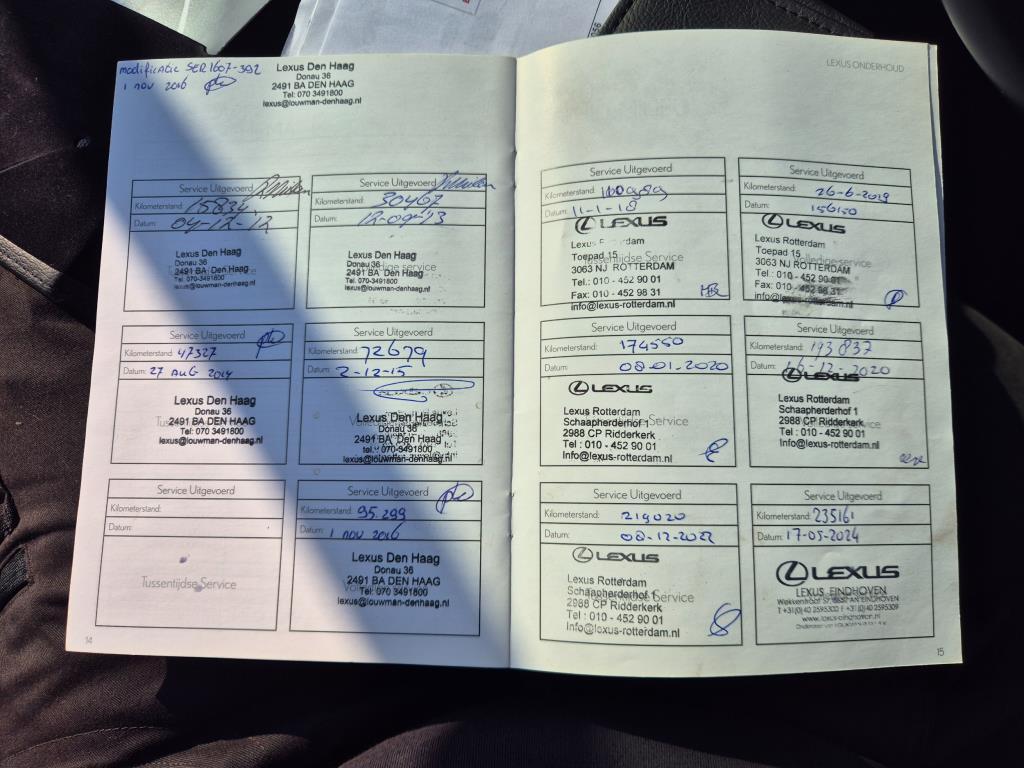 modificatie SER1607-392
1 nov 2016
Lexus Den Haag
Donau 36
2491 BA DEN HAAG
Tel: 070 3491800
lexus@louwman-denhaag.nl
Service Uitgevoerd
Kilometerstand: 15832
Datum: 04-12-12
Lexus Den Haag
Donau 36
2491 BA Den Haag
Tel: 070-3491800
lexus@louwman-denhaag.nl
Service Uitgevoerd
Kilometerstand: 30467
Datum: 12-09-13
Lexus Den Haag
Donau 36
2491 BA Den Haag
Tel: 070-3491800
lexus@louwman-denhaag.nl
Service Uitgevoerd
Kilometerstand: 47327
Datum: 27 AUG 2014
Lexus Den Haag
Donau 36
2491 BA DEN HAAG
Tel: 070 3491800
lexus@louwman-denhaag.nl
Service Uitgevoerd
Kilometerstand: 72679
Datum: 2-12-15
Lexus Den Haag
Donau 36
2491 BA DEN HAAG
Tel: 070-3491800
lexus@louwman-denhaag.nl
Service Uitgevoerd
Kilometerstand:
Datum:
Tussentijdse Service
Service Uitgevoerd
Kilometerstand: 95.299
Datum: 1 nov 2016
Lexus Den Haag
Donau 36
2491 BA DEN HAAG
Tel: 070 3491800
lexus@louwman-denhaag.nl
14
LEXUS ONDERHOUD
Service Uitgevoerd
Kilometerstand:
Datum: 11-1-18
LEXUS
Lexus Rotterdam
Toepad 15
Tussentijdse Service
3063 NJ ROTTERDAM
Tel.: 010 - 452 90 01
Fax: 010 - 452 98 31
info@lexus-rotterdam.nl
Service Uitgevoerd
Kilometerstand: 26-6-2019
Datum: 156150
LEXUS
Lexus Rotterdam
Toepad 15
Volledige service
3063 NJ ROTTERDAM
Tel.: 010 - 452 90 01
Fax: 010 - 452 98 31
info@lexus-rotterdam.nl
Service Uitgevoerd
Kilometerstand: 174550
Datum: 08.01.2020
LEXUS
Lexus Rotterdam
Schaapherderhof 1
2988 CP Ridderkerk
Tel : 010 - 452 90 01
Info@lexus-rotterdam.nl
Service Uitgevoerd
Kilometerstand: 193837
Datum: 16-12-2020
LEXUS
Lexus Rotterdam
Schaapherderhof 1
2988 CP Ridderkerk
Tel : 010 - 452 90 01
Info@lexus-rotterdam.nl
Service Uitgevoerd
Kilometerstand: 219020
Datum: 08-12-2022
LEXUS
Lexus Rotterdam
Schaapherderhof 1
2988 CP Ridderkerk
Tel : 010 - 452 90 01
Info@lexus-rotterdam.nl
Service Uitgevoerd
Kilometerstand: 235161
Datum: 17-05-2024
LEXUS
LEXUS EINDHOVEN
EINDHOVEN
T +31(0)40 2595300 F +31(0)40 2595309
www.lexus-eindhoven.nl
15